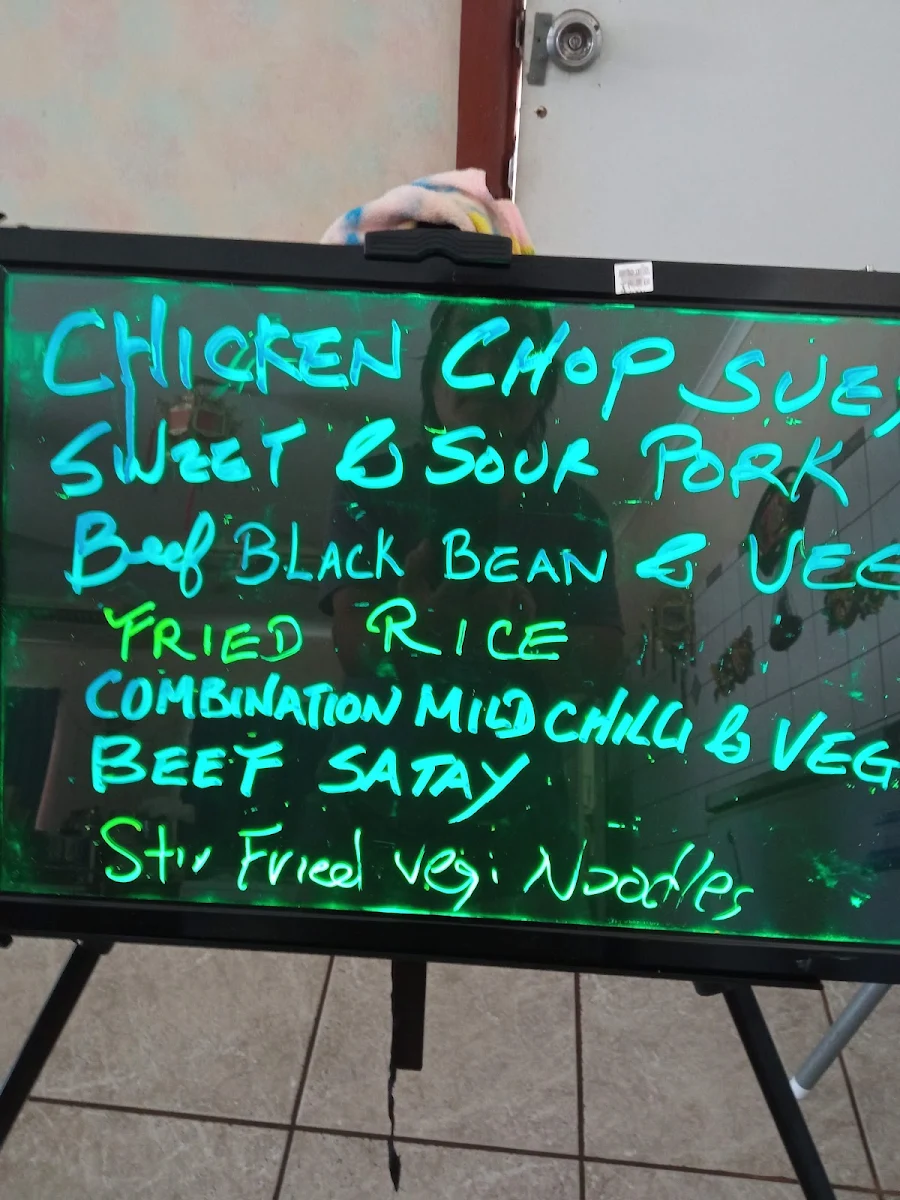 CHICKEN CHOP SUEY
SWEET & SOUR PORK
Beef BLACK BEAN & VEG
FRIED RICE
COMBINATION MILD CHILLI & VEG
BEEF SATAY
Stir Fried vegi Noodles